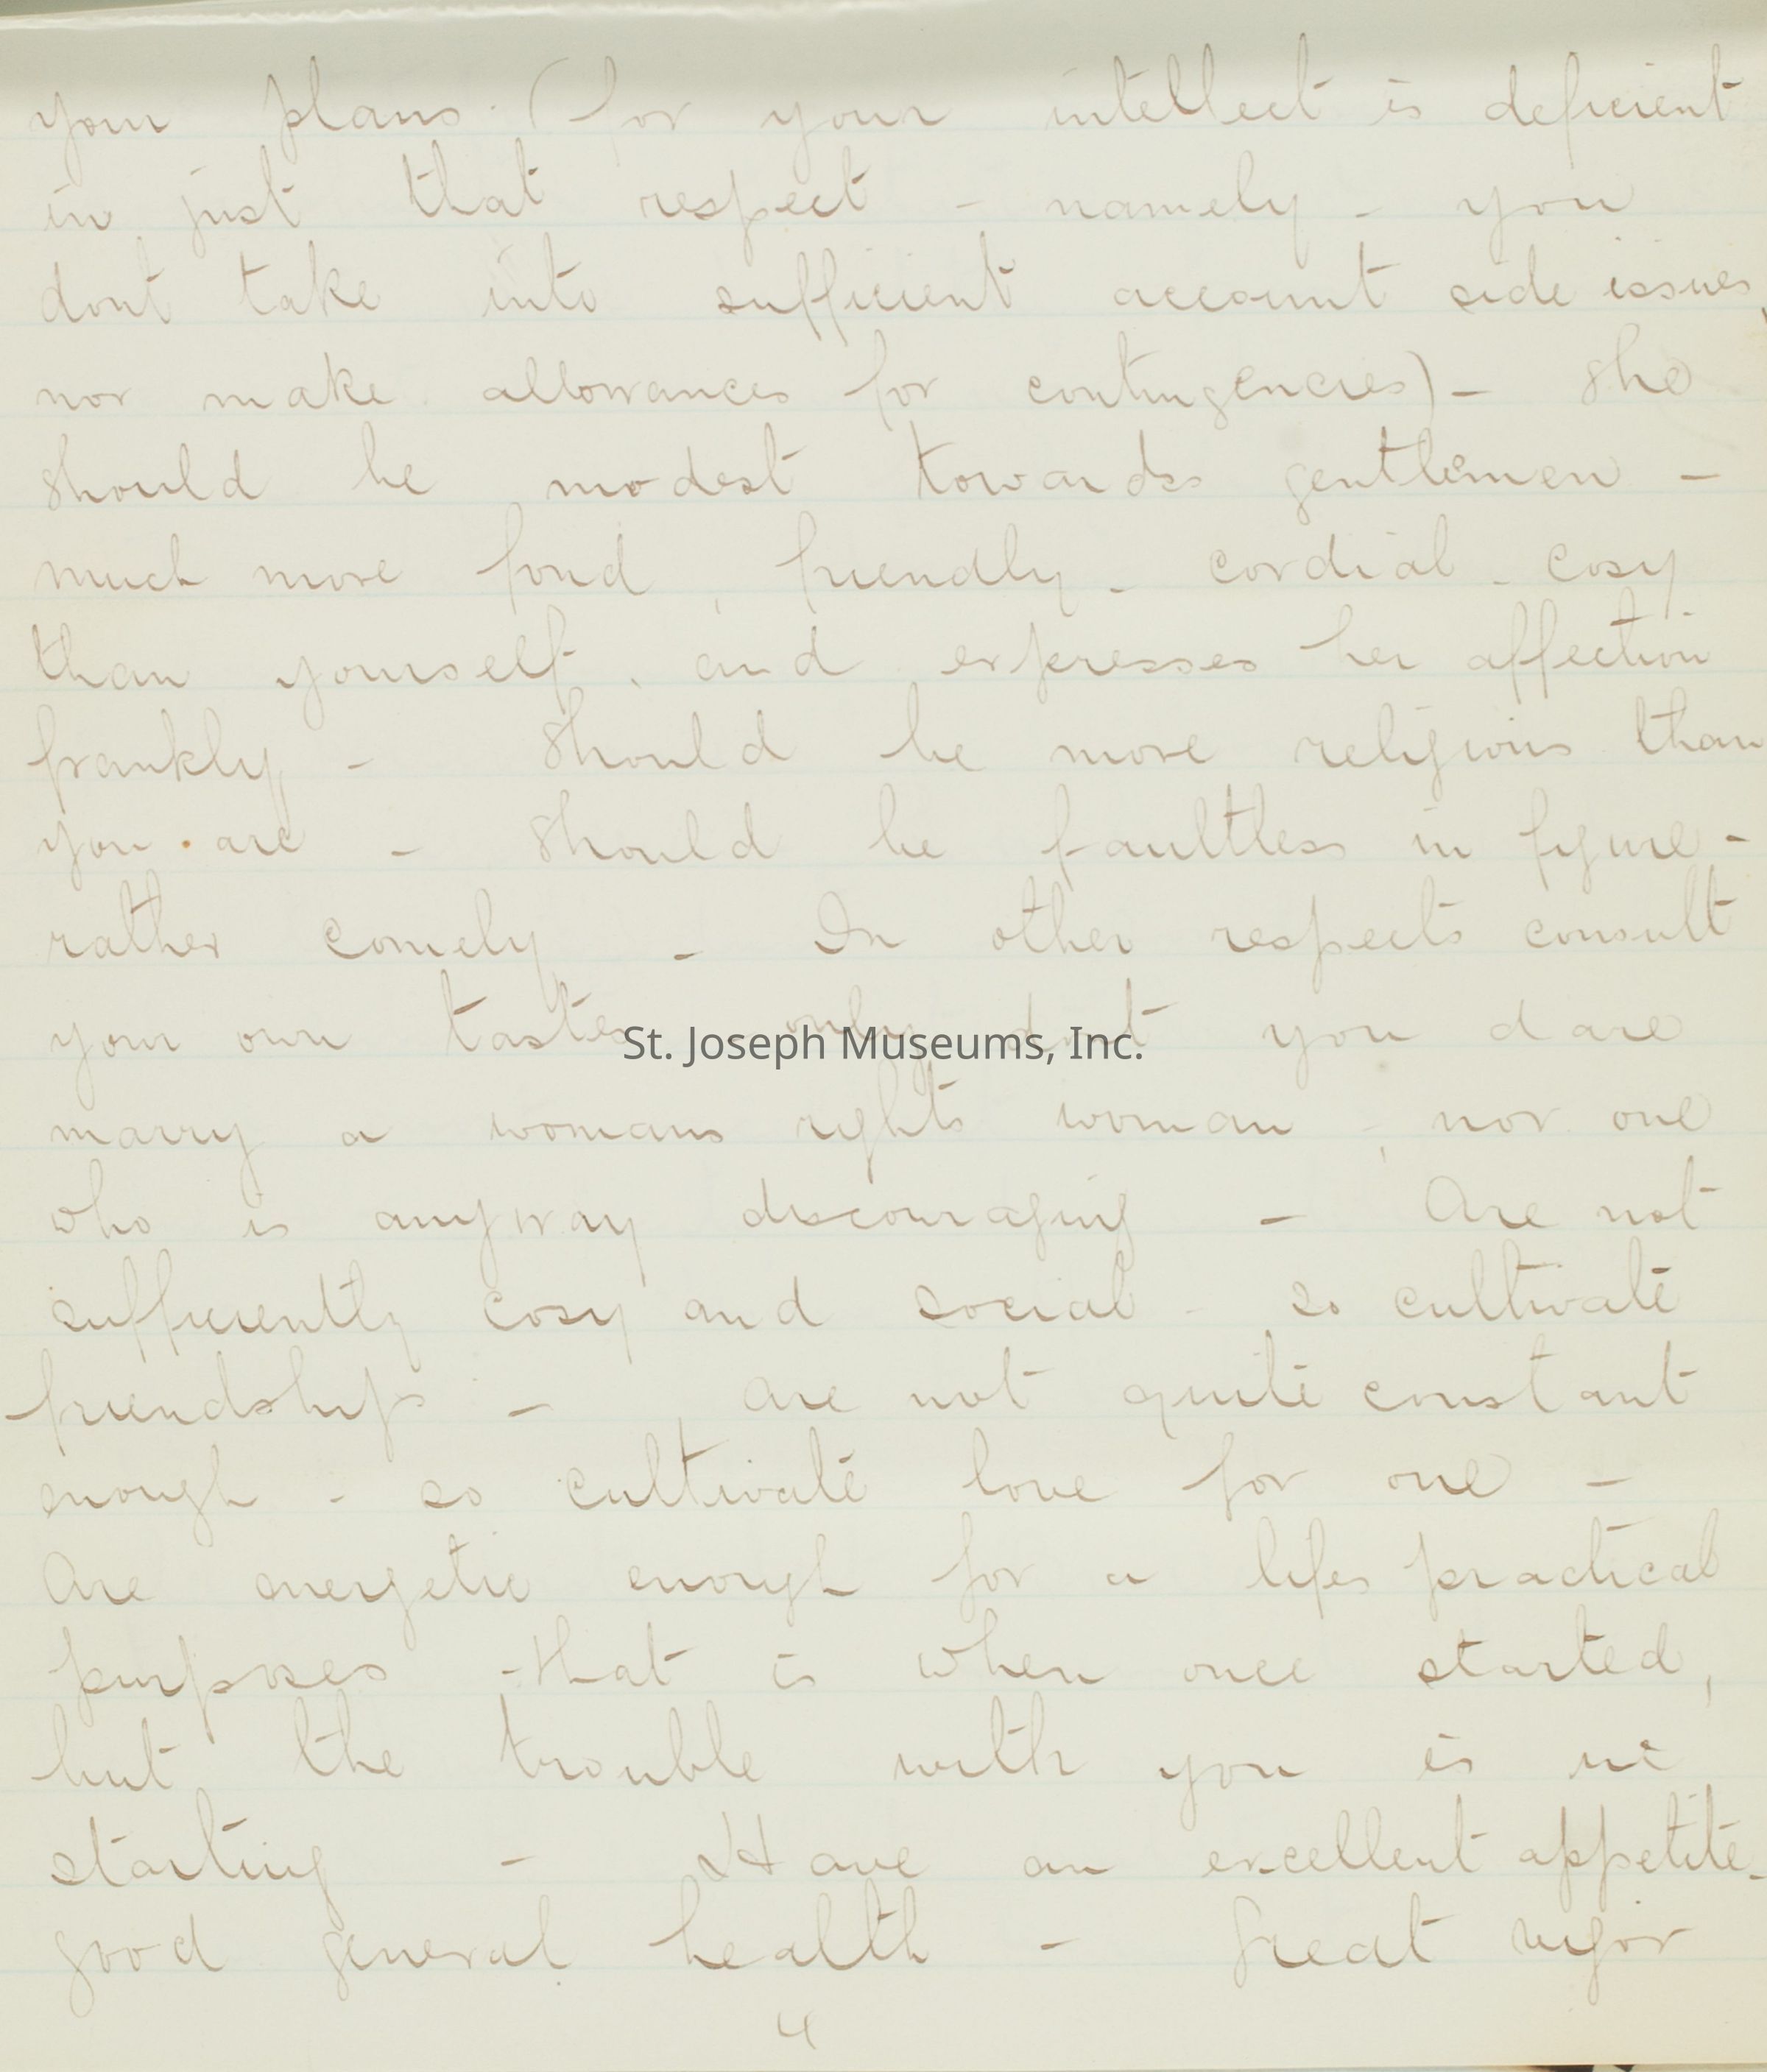 your plans. (for your intellect is deficient
in just that respect - namely - you
dont take into sufficient account side issues,
nor make allowances for contingencies) - She
should be modest towards gentlemen -
much more fond, friendly - cordial - cosy
than yourself, and expresses her affection
frankly - Should be more religious than
you are - Should be faultless in figure -
rather comely - In other respects consult
your own tastes only dont you dare
St. Joseph Museums, Inc.
marry a womans rights woman, nor one
who is anyway discouraging - Are not
sufficiently cosy and social - so cultivate
friendships - Are not quite constant
enough - so cultivate love for one -
Are energetic enough for a lifes practical
purposes - that is when once started,
but the trouble with you is in
starting - Have an excellent appetite -
good general health - Great vigor
4